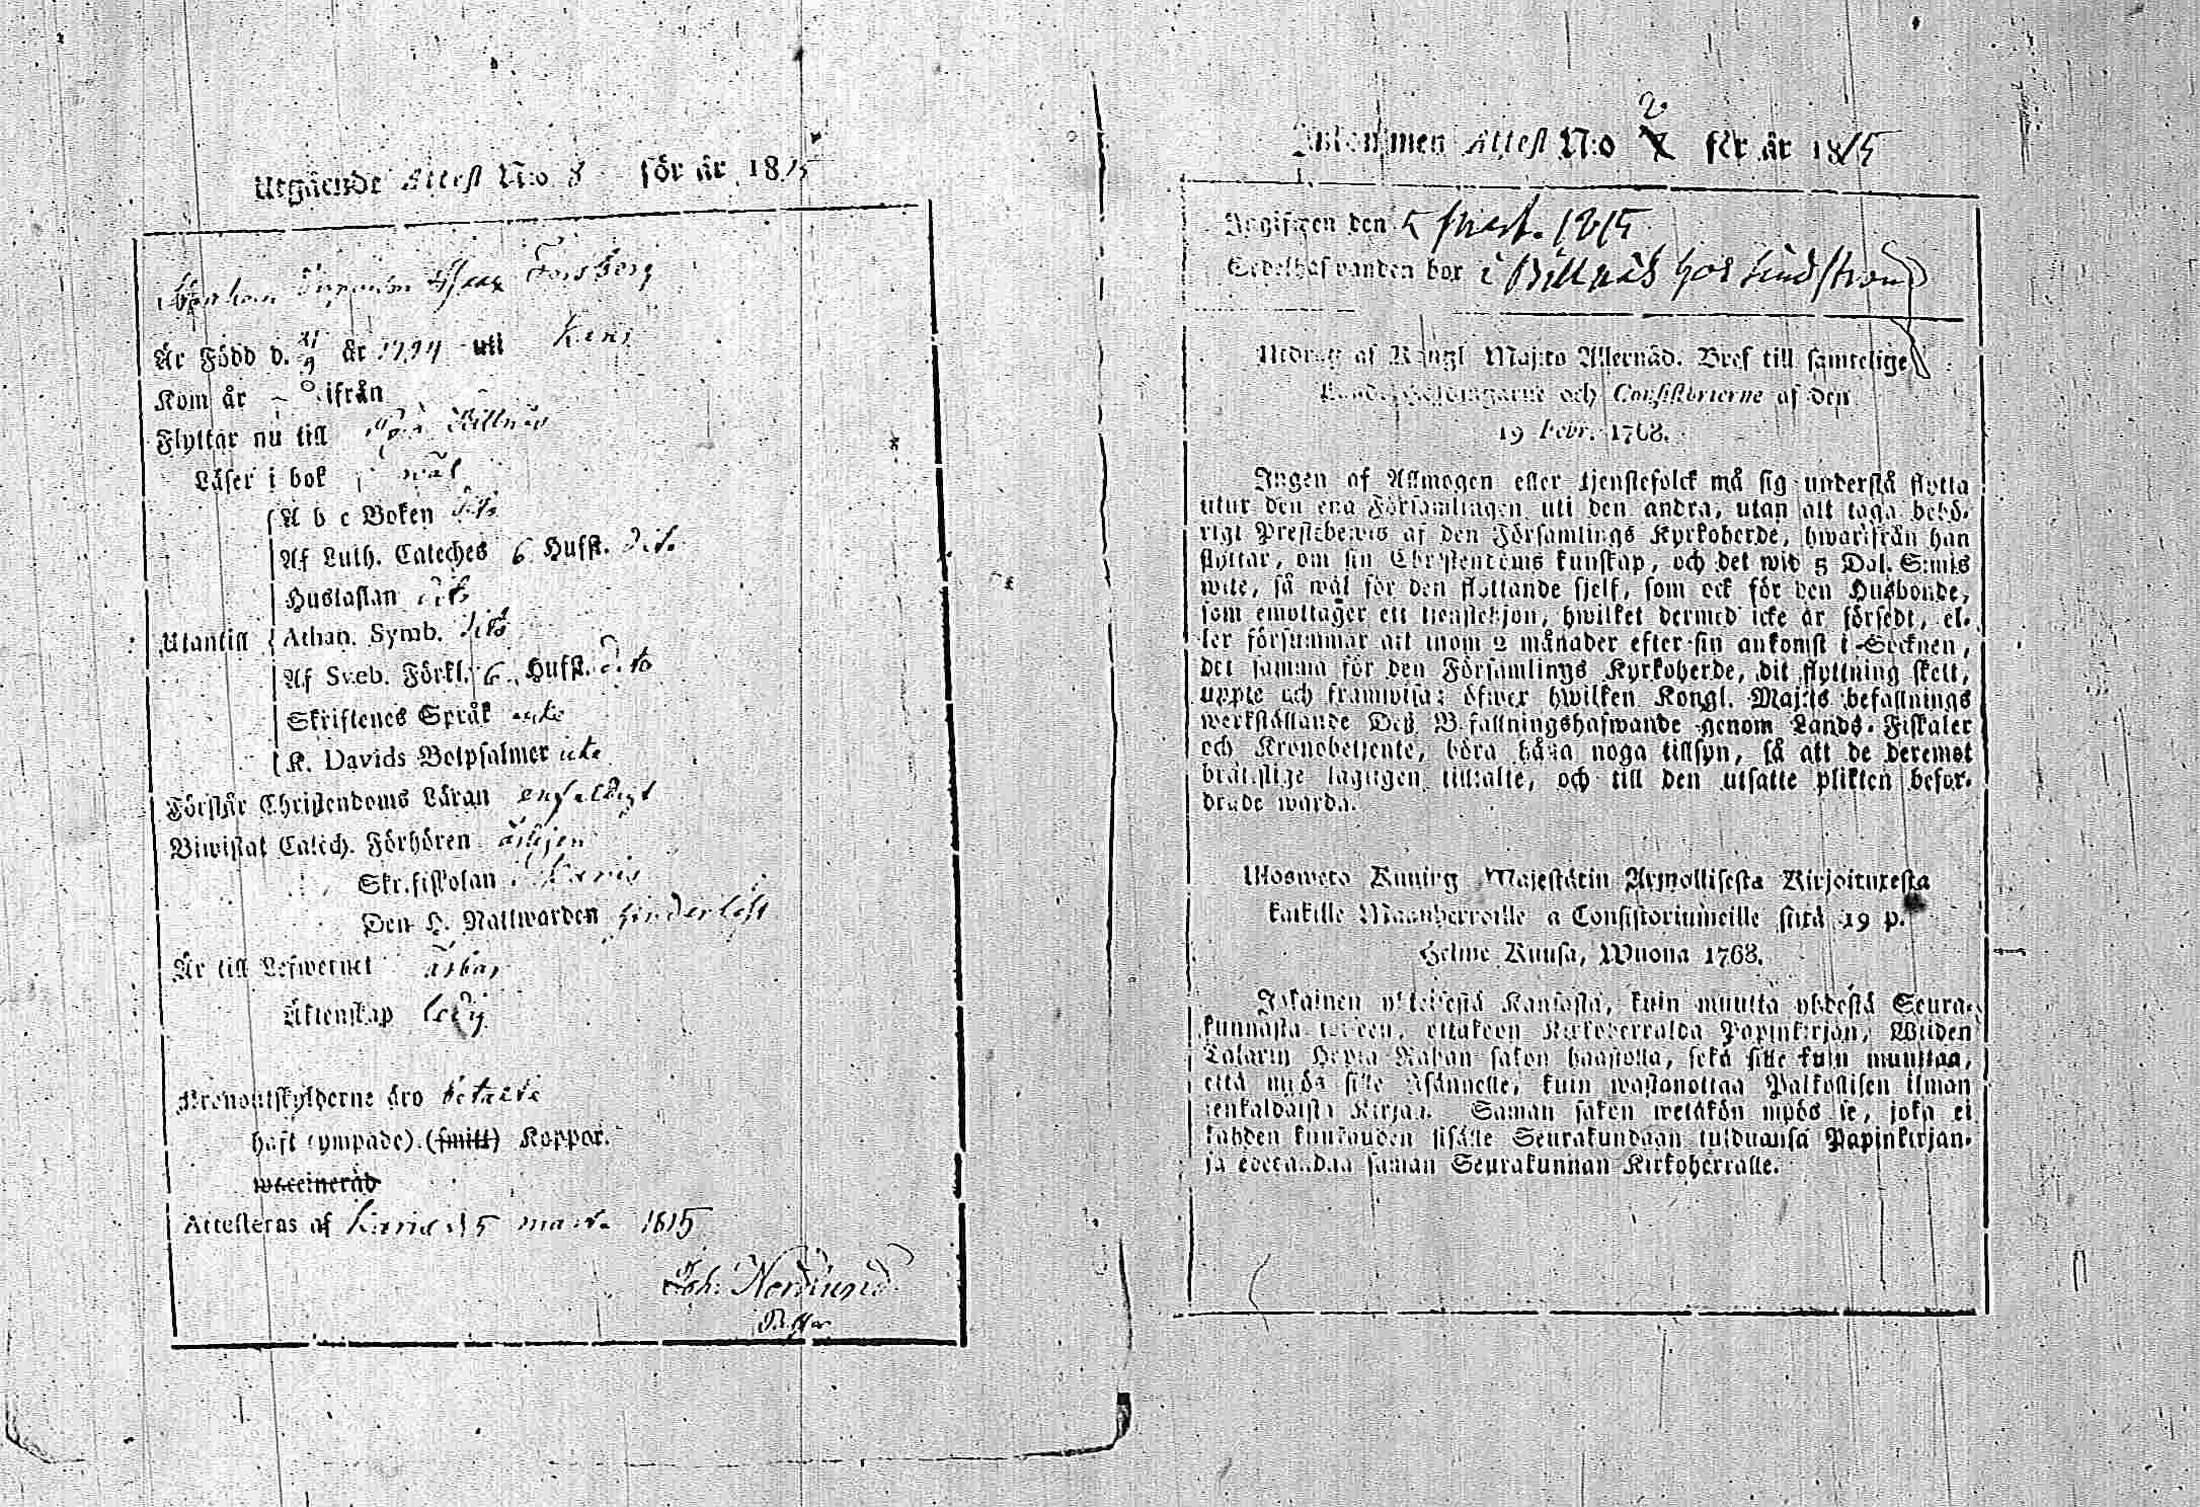 Utgående Attest N:o 8 för år 1815
Forsberg
Är Född d. 21/9 år 1794 uti Karis
Kom år — ifrån
Flyttar nu till Billnäs
Läser i bok wäl
A b c Boken dito
Af Luth. Cateches 6 Hufst. dito
Hustaflan dito
Utantill Athan. Symb. dito
Af Sveb. Förkl. 6 Hufst. dito
Skriftenes Språk icke
K. Davids Botpsalmer icke
Förstår Christendoms Läran enfaldigt
Biwistat Catech. Förhören årligen
Skriftskolan i Karis
Den H. Nattwarden hinderlöst
Är till Lefwernet ärbar
Äktenskap ledig
Kronoutskylderne äro betalte
haft (ympade) (smitt) Koppor.
Attesteras af Karis d 5 mart. 1815
Joh: Nordlund
Pastor
Inkommen Attest N:o 2 för år 1815
Angifven den 5 Mart. 1815
Sedelhafvanden bor i Billnäs hos Lindström
Utdrag af Kongl Maj:ts Allernåd. Bref till samtelige
Landshöfdingarne och Consistorierne af den
19 Febr. 1768.
Ingen af Allmogen eller tjenstefolck må sig understå flytta
utur den ena Församlingen uti den andra, utan att taga behö-
rigt Prestebewis af den Församlings Kyrkoherde, hwarifrån han
flyttar, om sin Christendoms kunskap, och det wid 5 Dal. S:mts
wite, så wäl för den flyttande sjelf, som ock för den Husbonde,
som emottager ett tienstehjon, hwilket dermed icke är försedt, el-
ler försummar att inom 2 månader efter sin ankomst i Socknen,
det samma för den Församlings Kyrkoherde, dit flyttning skett,
uppte och framwisa; öfwer hwilken Kongl. Maj:ts befallnings
werkställande Deß Befallningshafwande genom Lands-Fiskaler
och Kronobetjente, böra hafwa noga tillsyn, så att de deremot
brottslige lagligen tilltalte, och till den utsatte plikten befor-
drade warda.
Ulosweto Kuning Majestätin Armollisesta Kirjoituxesta
kaikille Maanherroille ja Consistoriumeille siitä 19 p.
Helme Kuusa, Wuona 1768.
Jokainen yhteisestä Kansasta, kuin muutta yhdestä Seura-
kunnasta toiseen, ottakoon Kirkoherralda Papinkirjan, Wiiden
Talarin Hopia Rahan sakon haastolla, sekä sille kuin muuttaa,
että myös sille Isännelle, kuin wastanottaa Palkollisen ilman
senkaldaista Kirjaa. Saman sakon wetäkön myös se, joka ei
kahden kuukauden sisälle Seurakundaan tulduansa Papinkirjan-
sa edesanna saman Seurakunnan Kirkoherralle.